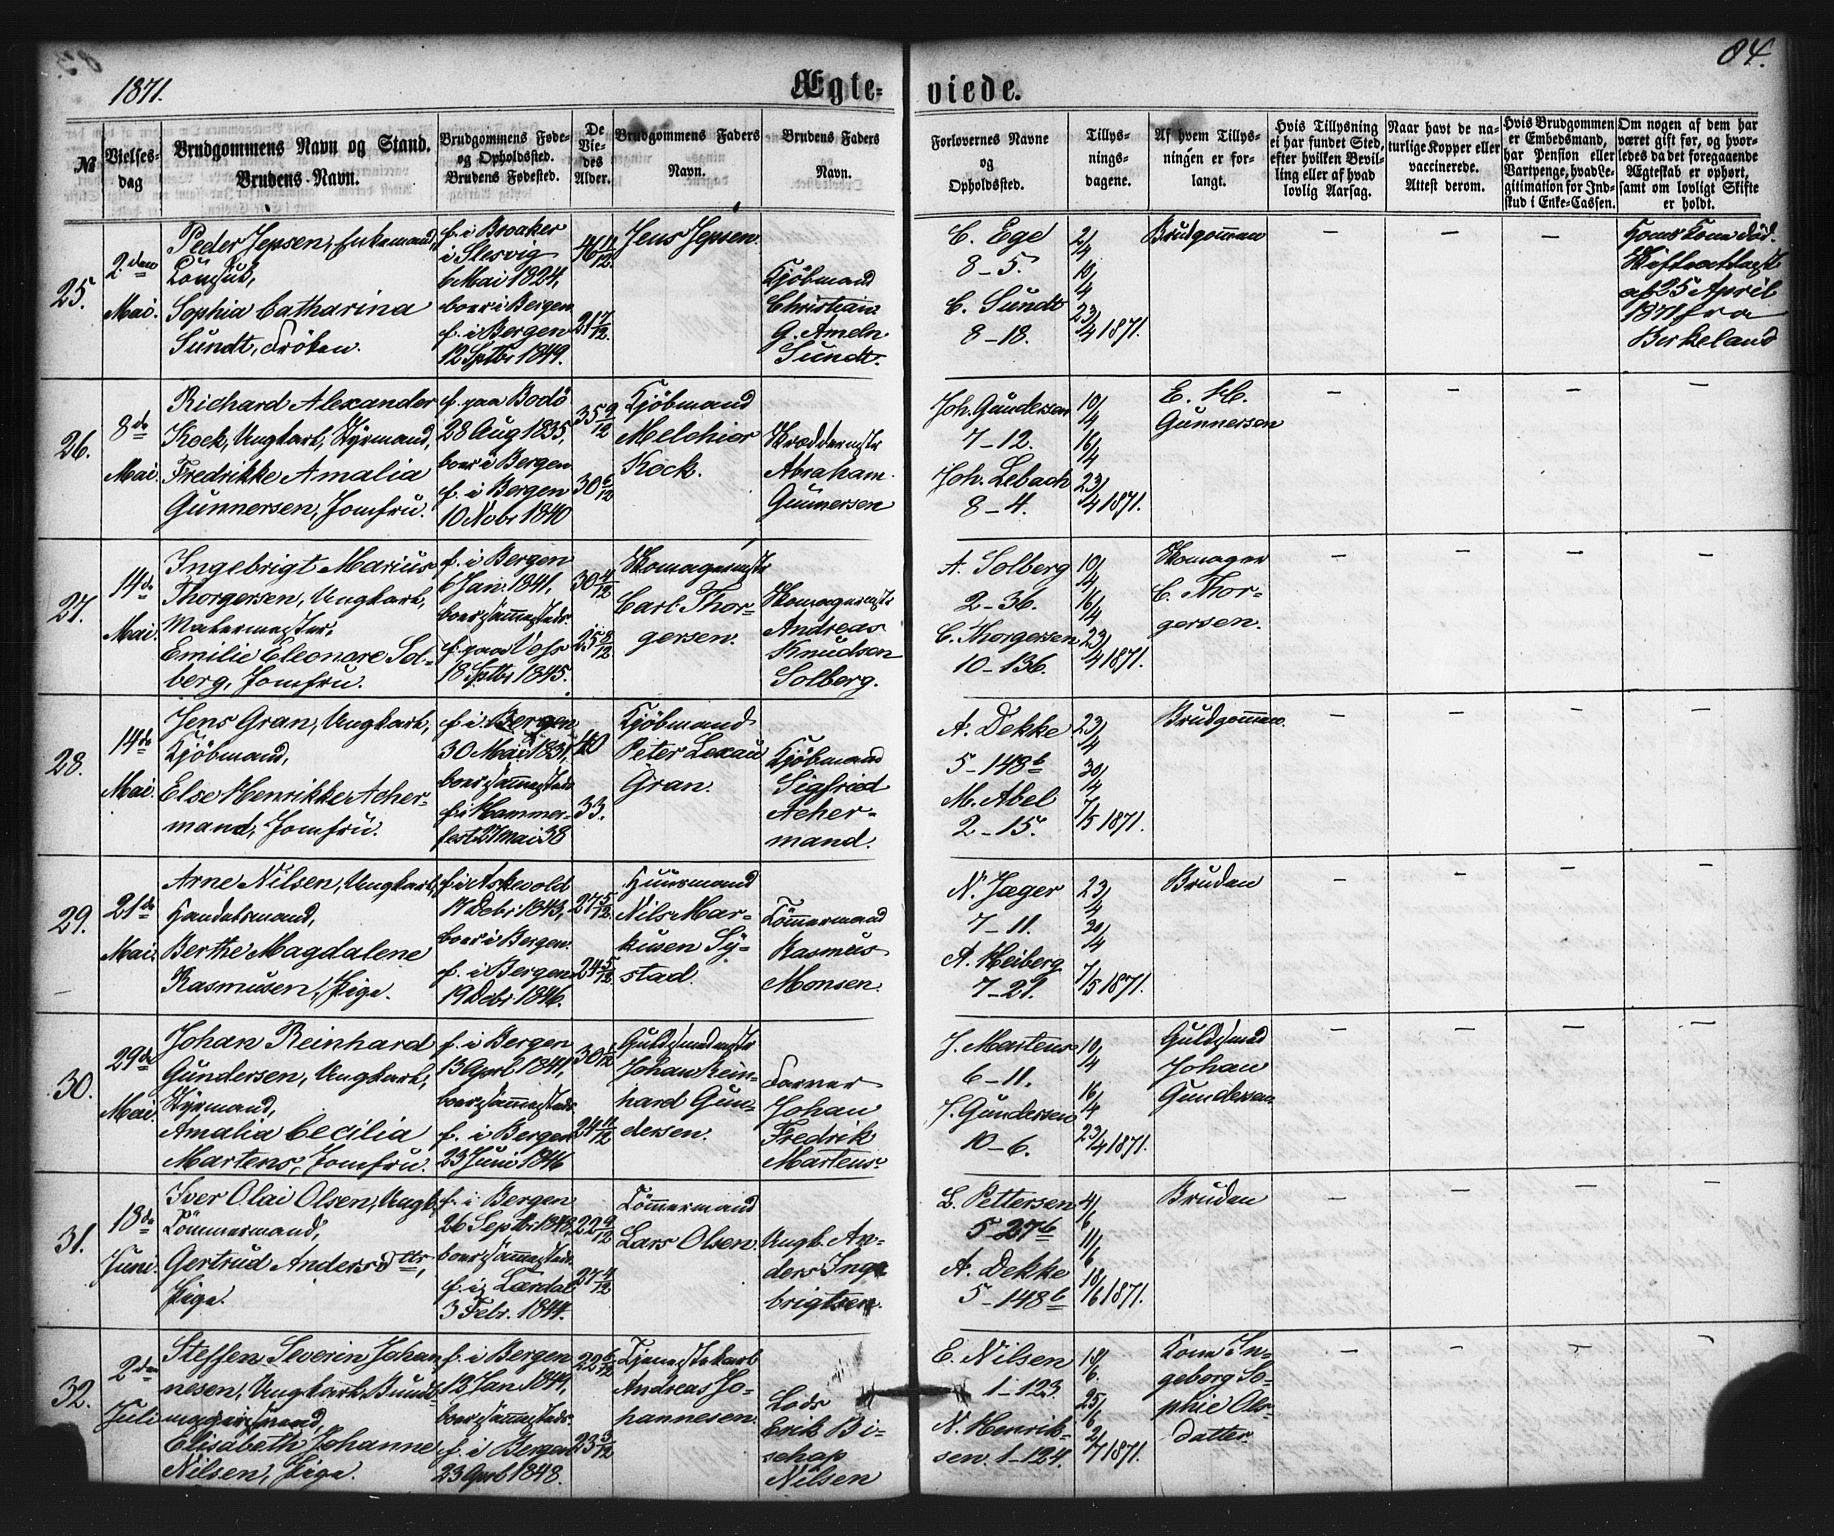 1871.
Ægteviede.
84.
№
Vielsesdag
Brudgommens Navn og Stand.
Brudens Navn.
Brudgommens Fødeog Opholdssted.
Brudens Fødested.
De Viedes Alder.
Brudgommens Faders Navn.
Brudens Faders Navn.
Forlovernes Navne og Opholdssted.
Tillysningsdagene.
Af hvem Tillysningen er forlangt.
Hvis Tillysning ei har fundet Sted, efter hvilken Bevilling eller af hvad lovlig Aarsag.
Naar havt de naturlige Kopper eller vaccinerede. Attest derom.
Hvis Brudgommen er Embedsmand, har Pension eller Vartpenge, hvad Legitimation for Indskud i Enke-Cassen.
Om nogen af dem har været gift før, og hvorledes da det foregaaende Ægteskab er ophørt, samt om lovligt Skifte er holdt.
25.
2den Mai.
Peder Jepsen, Enkemand,
Consul,
Sophia Catharina
Sundt, Frøken.
f. i Broaker
i Slesvig
6 Mai 1824,
boer i Bergen
f. i Bergen
12 Septbr 1849.
46 11/12
21 7/12
Jens Jepsen.
Kjöbmand
Christian
G. Ameln
Sundt.
C. Ege
8-5.
C. Sundt
8-18.
2/4
10/4
23/4 1871.
Brudgommen
Hans Kone död.
Skifteattest
af 25 April
1871 fra
Birkeland
26.
8de Mai.
Richard Alexander
Kock, Ungkarl, Styrmand,
Fredrikke Amalia
Gunnersen, Jomfru.
f. paa Bodö
28 Aug 1835,
boer i Bergen
f. i Bergen
10 Novbr 1840
35 9/12
30 6/12
Kjöbmand
Melchior
Kock.
Skræddermstr
Abraham
Gunnersen
Joh. Gundersen
7-12.
Joh. Lebach
8-4.
10/4
16/4
23/4 1871.
E. H.
Gunnersen
27.
14de Mai.
Ingebrigt Marius
Thorgersen, Ungkarl,
Malermester,
Emilie Eleonare Solberg, Jomfru.
f. i Bergen
6 Jan. 1841,
boer sammesteds
f. paa Voss
18 Septbr 1845.
30 4/12
25 8/12
Skomagermstr
Carl Thorgersen.
Skomagermstr
Andreas
Knudsen
Solberg.
A. Solberg
2-36.
C. Thorgersen
10-136.
10/4
16/4
23/4 1871.
Skomager
C. Thorgersen.
28.
14de Mai.
Jens Gran, Ungkarl,
Kjöbmand,
Else Henrikke Achermand, Jomfru.
f. i Bergen
30 Mai 1831,
boer sammesteds
f. i Hammerfest 27 Mai 38
40
33.
Kjöbmand
Peter Lexau
Gran.
Kjöbmand
Sigfried
Achermand.
A. Dekke
5-148b
M. Abel
2-15.
23/4
30/4
7/5 1871.
Brudgommen.
29.
21de Mai.
Arne Nilsen, Ungkarl,
Handelsmand,
Berthe Magdalene
Rasmusen, Pige.
f. i Askevold
17 Debr 1843,
boer i Bergen.
f. i Bergen
19 Debr 1846.
27 5/12
24 5/12
Huusmand
Nils Markusen Systad.
Tömmermand
Rasmus
Monsen.
N. Jæger
7-11.
A. Heiberg
7-21.
23/4
30/4
7/5 1871.
Bruden
30.
29de Mai.
Johan Reinhard
Gundersen, Ungkarl,
Styrmand,
Amalia Cecilia
Martens, Jomfru.
f. i Bergen
13 April 1841,
boer sammesteds
f. i Bergen
23 Juni 1846
30 1/12
24 11/12
Guldsmedmstr
Johan Reinhard Gundersen.
Farver
Johan
Fredrik
Martens.
J. Martens
6-11.
J. Gundersen
10-6.
10/4
16/4
23/4 1871.
Guldsmed
Johan
Gundersen
31.
18de Juni.
Iver Olai Olsen, Ungk.
Tömmermand,
Gertrud Andersdttr,
Pige.
f. i Bergen
26 Septbr 1848,
boer sammesteds
f. i Lærdal
3 Febr. 1844.
22 9/12
27 4/12
Tömmermand
Lars Olsen.
Ungk. Anders Ingebrigtsen.
L. Pettersen
5-27b
A. Dekke
5-148b
4/6
11/6
18/6 1871.
Bruden
32.
2den Juli
Steffen Severin Johannesen, Ungkarl, Bundtmagersvend,
Elisabeth Johanne
Nilsen, Pige.
f. i Bergen
12 Jan. 1849,
boer sammesteds
f. i Bergen
23 April 1848.
22 6/12
23 3/12
Tjenestekarl
Andreas Johannesen.
Lods
Erik Bischop
Nilsen
E. Nilsen
1-123.
N. Henriksen. 1-124.
18/6
25/6
2/7 1871.
Kone Ingeborg Sophie Olsdatter.